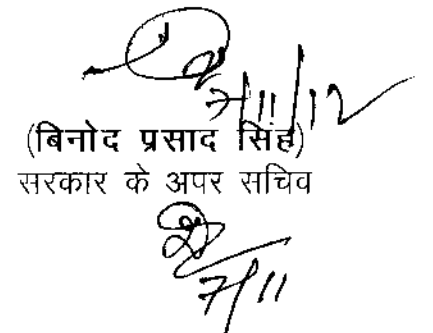 7/11/12
(बिनोद प्रसाद सिंह)
सरकार के अपर सचिव
7/11